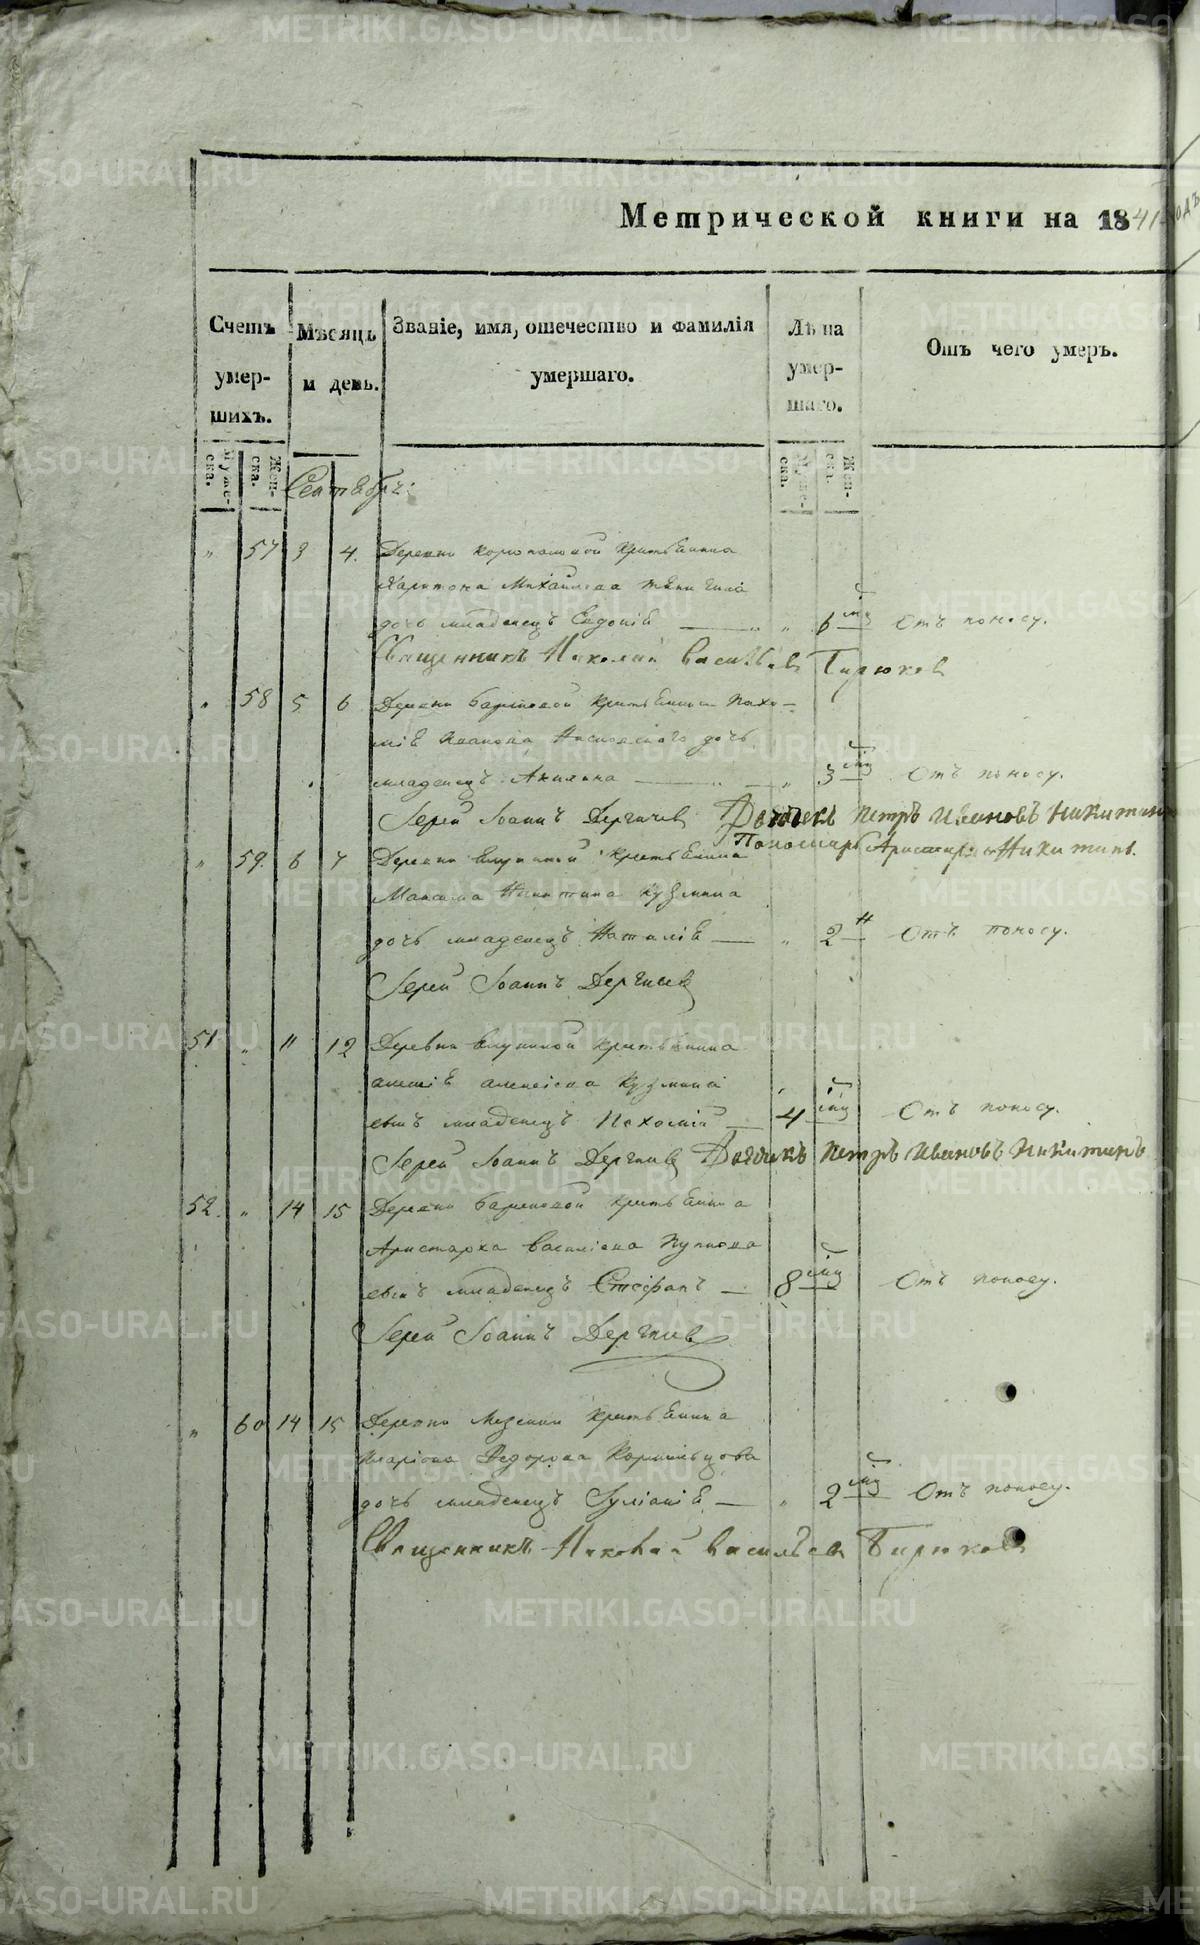 Метрической книги на 1841 годъ
Счетъ умер-шихъ.
Мѣсяцъ и день.
Званіе, имя, отечество и фамилія умершаго.
Лѣта умер-шаго.
Отъ чего умеръ.
Муже-ска.
Жен-ска.
Муже-ска.
Жен-ска.
Сентябрь:
„ 57 3 4. Деревни крестьянина
Харитона Михайлова
дочь младенецъ Евдокія „ 6 мц Отъ поносу.
Священникъ Николай Васильевъ Бирюков
„ 58 5 6 Деревни Бариновой крестьянина Пахо-
міѣ Иванова дочь
младенецъ Акилина „ 3 мц Отъ поносу.
Іерей Іоаннъ Дергачев Дьячекъ Петръ Ивановъ Никитинъ
Пономарь Аристархъ Никитинъ.
„ 59. 6 7 Деревни крестьянина
Максима Никитина Кузмина
дочь младенецъ Наталіѣ „ 2 н Отъ поносу.
Іерей Іоаннъ Дергачев
51 „ 11 12 Деревни крестьянина
Алексіева Кузмина
сынъ младенецъ Пахомій 4 мц Отъ поносу.
Іерей Іоаннъ Дергачев Дьячикъ Петръ Ивановъ Никитинъ
52. „ 14 15 Деревни Бариновой крестьянина
Аристарха Василіева
сынъ младенецъ Стефанъ 8 мц Отъ поносу.
Іерей Іоаннъ Дергачев
„ 60 14 15 Деревни Мезенки крестьянина
Иларіона Федорова Кормильцова
дочь младенецъ Іуліаніѣ „ 2 мц Отъ поносу.
Священникъ Николай Васильев Бирюков
METRIKI.GASO-URAL.RU